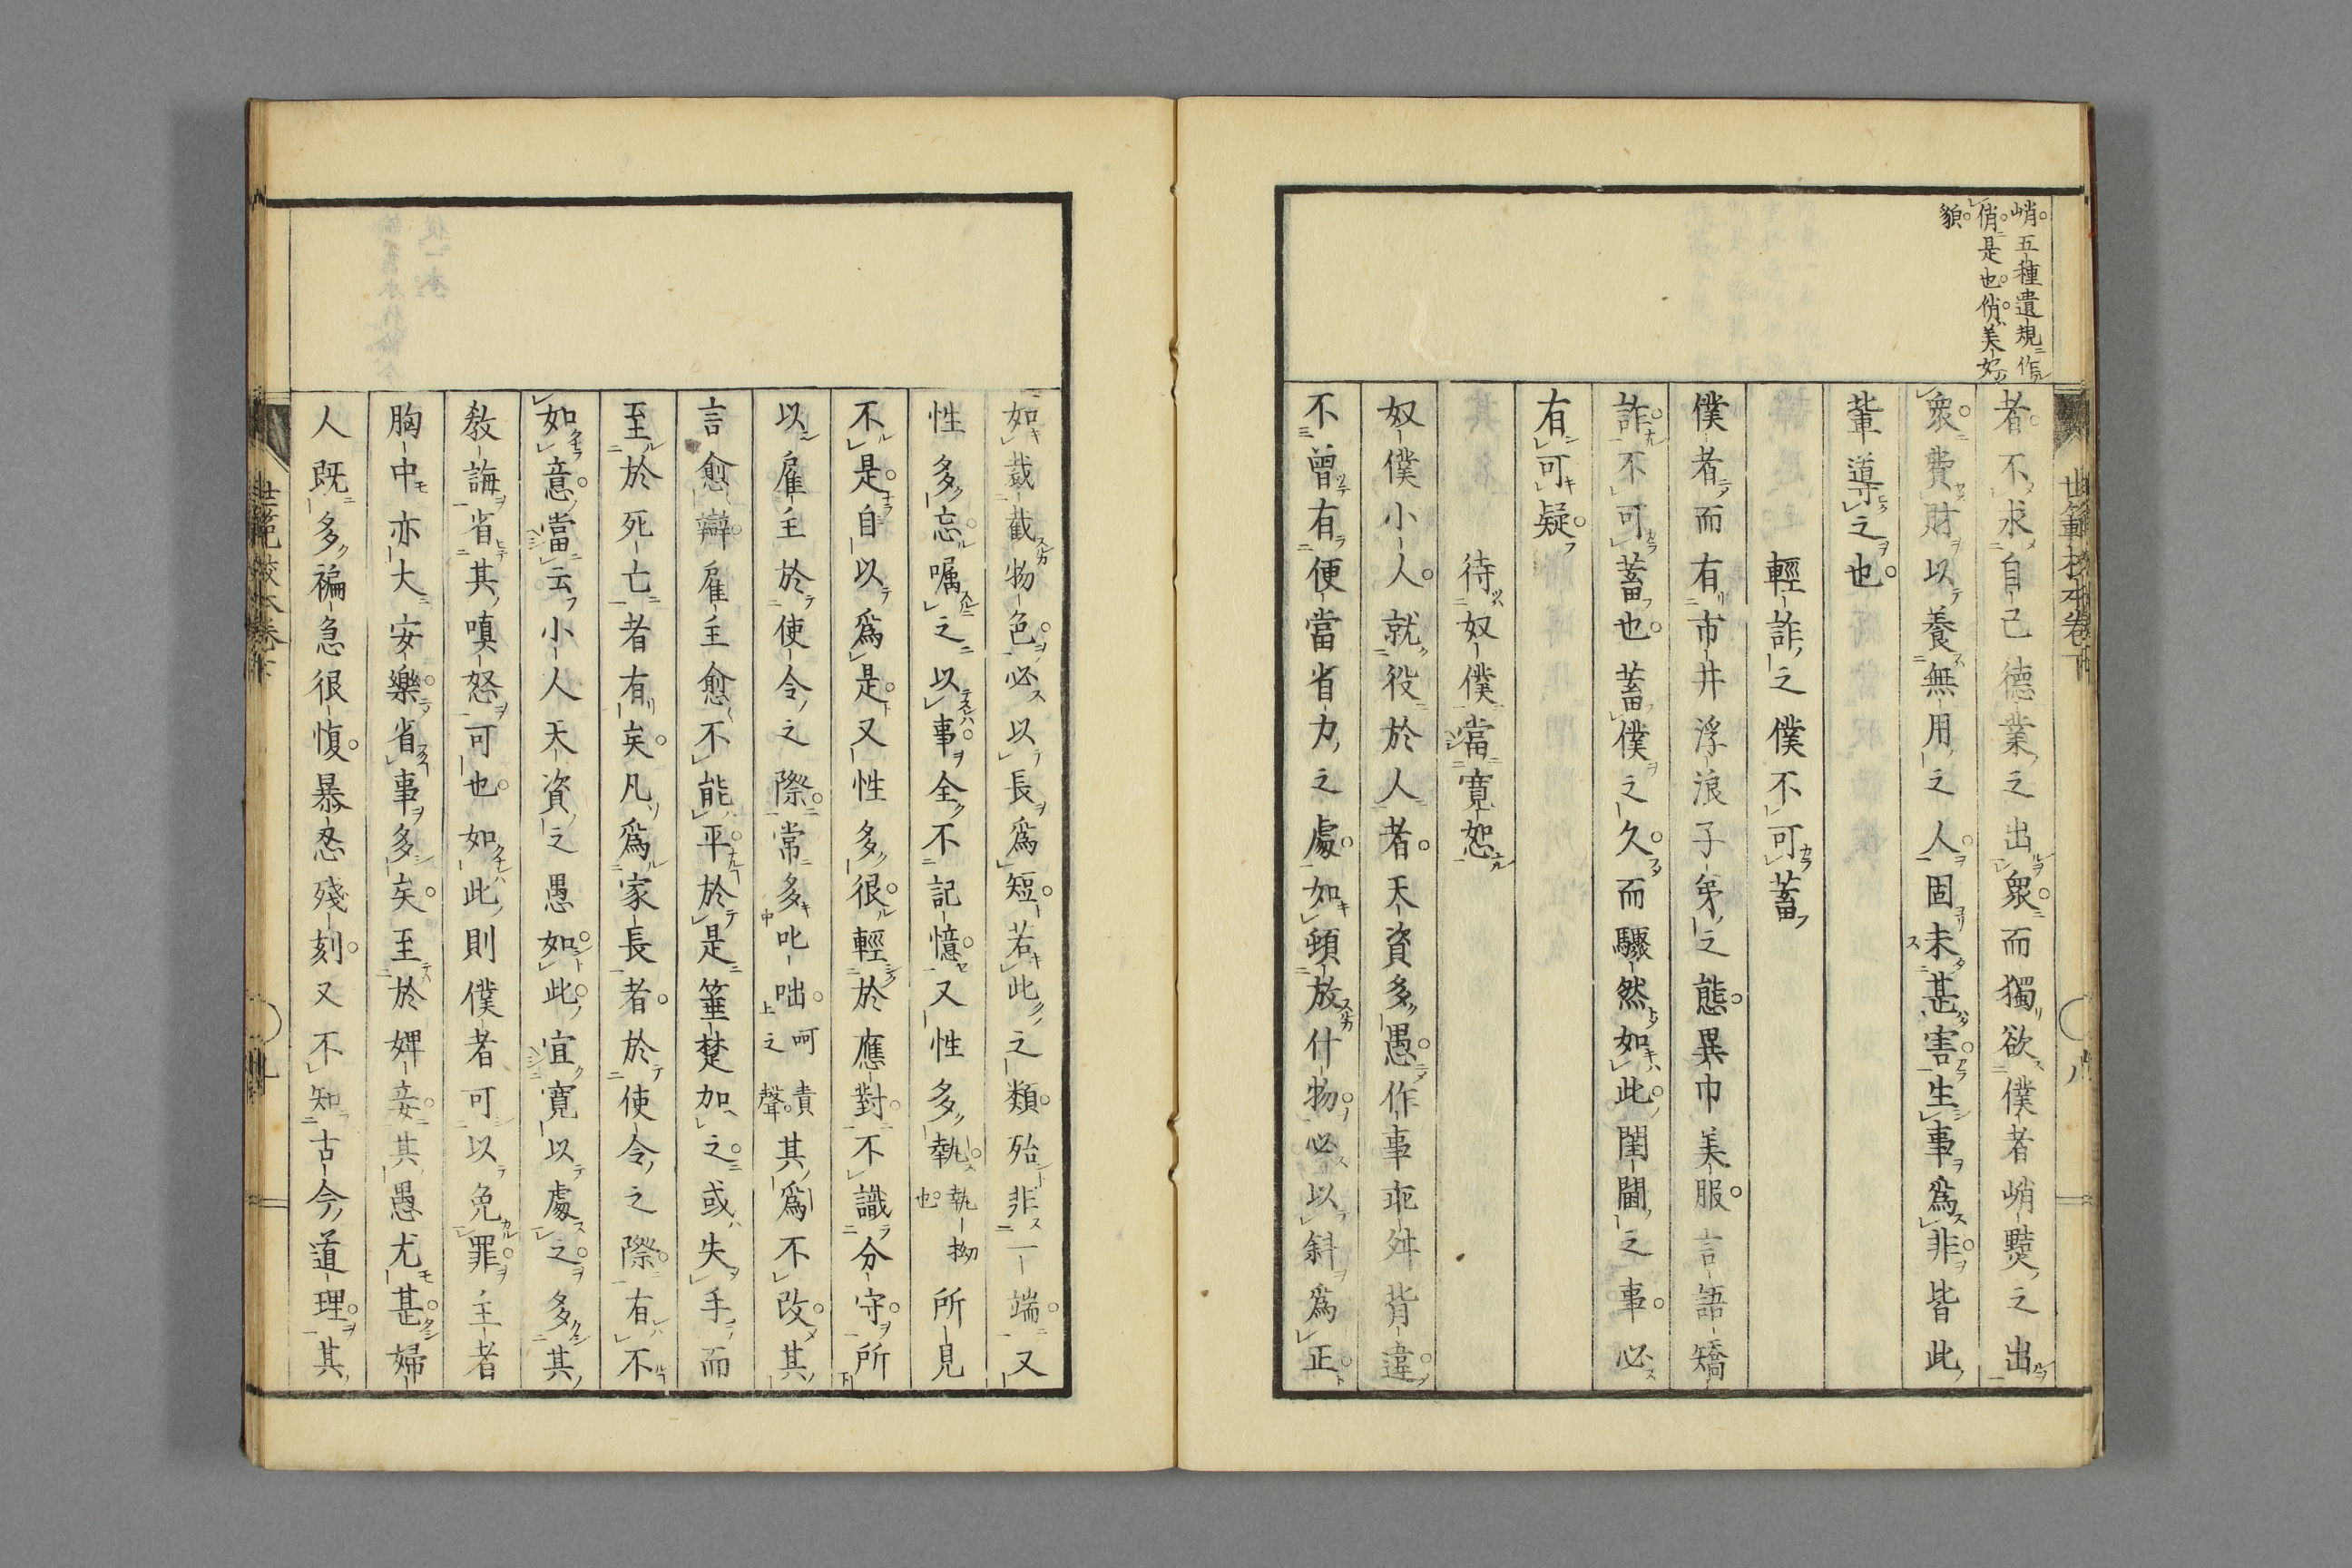 世範校本卷下
八
峭。五種遺規作
俏。是也。俏。美好
貌。
者。不求自己德業之出衆。而獨欲僕者峭黠之出
衆。費財以養無用之人。固未甚害。生事爲非。皆此
輩導之也。
輕詐之僕不可蓄
僕者而有市井浮浪子弟之態。異巾美服。言語矯
詐。不可蓄也。蓄僕之久。而驟然如此。閨閫之事。必
有可疑。
待奴僕當寛恕
奴僕小人。就役於人者。天資多愚。作事乖舛背違。
不曾有便當省力之處。如頓放什物。必以斜爲正。
如裁截物色。必以長爲短。若此之類。殆非一端。又
性多忘。嘱之以事。全不記憶。又性多執。執拗也。所見
不是。自以爲是。又性多很。輕於應對。不識分守。所
以雇主於使令之際。常多叱咄。呵責之聲。其爲不改。其
言愈辯。雇主愈不能平。於是箠楚加之。或失手而
至於死亡者有矣。凡爲家長者。於使令之際。有不
如意。當云小人天資之愚如此。宜寛以處之。多其
教誨。省其嗔怒可也。如此則僕者可以免罪。主者
胸中亦大安樂。省事多矣。至於婢妾。其愚尤甚。婦
人既多褊急很愎。暴忍殘刻。又不知古今道理。其
世範校本卷下